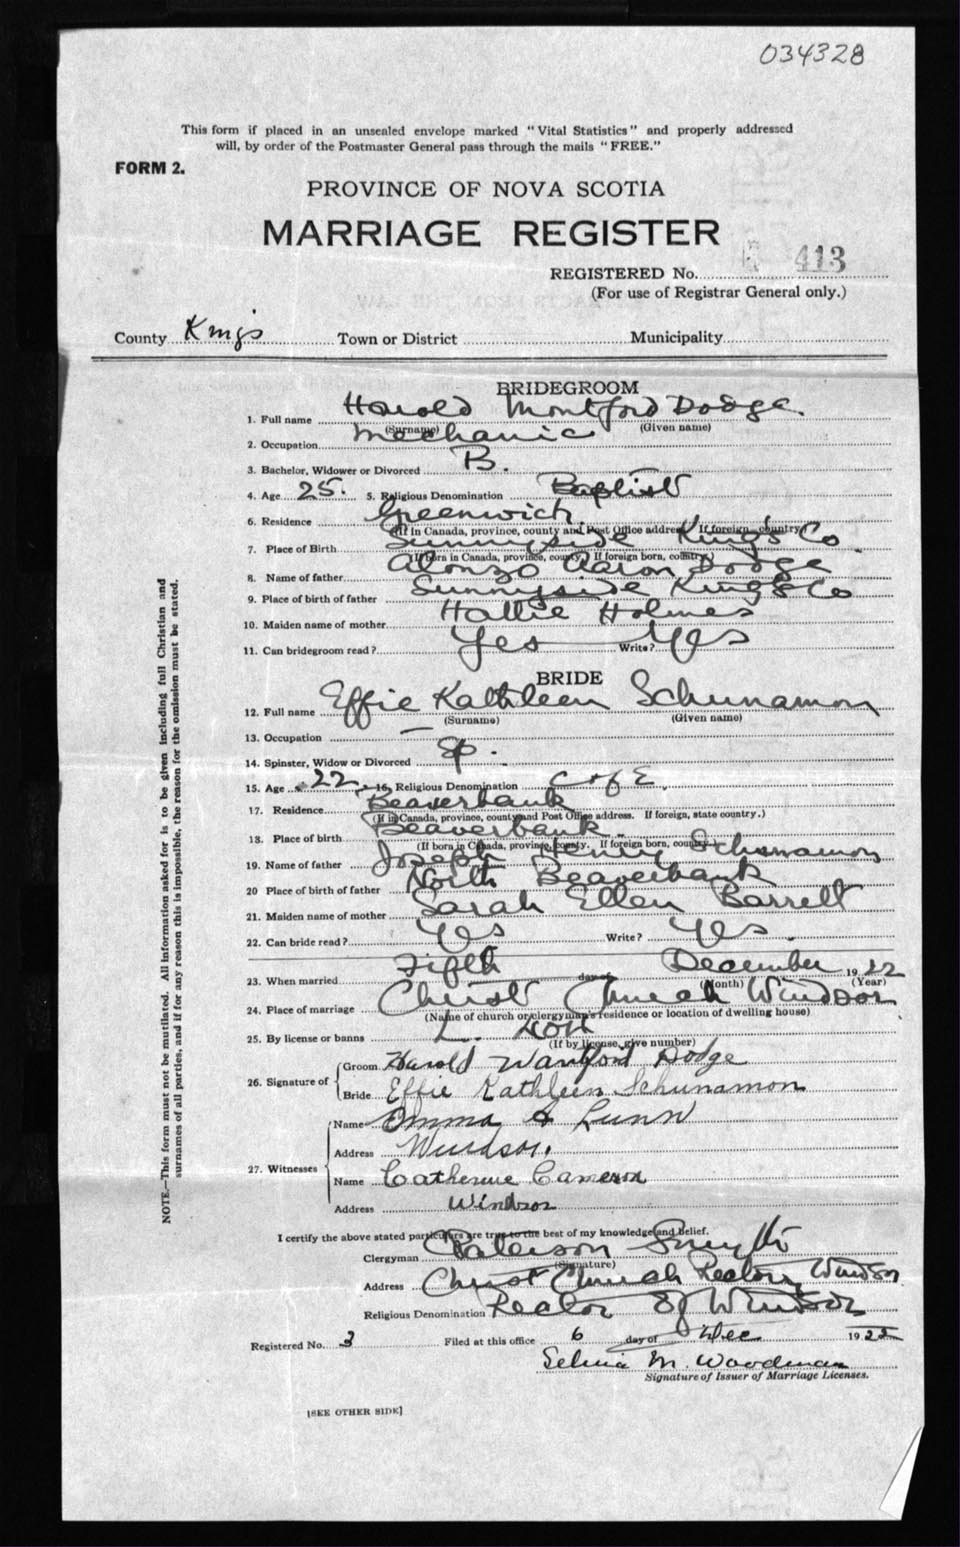 034328
This form if placed in an unsealed envelope marked "Vital Statistics" and properly addressed
will, by order of the Postmaster General pass through the mails "FREE."
FORM 2.
PROVINCE OF NOVA SCOTIA
MARRIAGE REGISTER
REGISTERED No. 413
(For use of Registrar General only.)
County Kings Town or District Municipality
BRIDEGROOM
1. Full name Harold Montford Dodge
(Surname) (Given name)
2. Occupation Mechanic
3. Bachelor, Widower or Divorced B.
4. Age 25. 5. Religious Denomination Baptist
6. Residence Greenwich
(If in Canada, province, county and Post Office address. If foreign, country)
7. Place of Birth Sunnyside King's Co.
(If born in Canada, province, county. If foreign born, country)
8. Name of father Alonzo Aaron Dodge
9. Place of birth of father Sunnyside King's Co
10. Maiden name of mother Hallie Holmes
11. Can bridegroom read? Yes Write? Yes
BRIDE
12. Full name Effie Kathleen Schunamon
(Surname) (Given name)
13. Occupation —
14. Spinster, Widow or Divorced Sp.
15. Age 22 16. Religious Denomination C of E.
17. Residence Beaverbank
(If in Canada, province, county and Post Office address. If foreign, state country.)
18. Place of birth Beaverbank.
(If born in Canada, province, county. If foreign born, country)
19. Name of father Joseph Henry Schunamon
20 Place of birth of father North Beaverbank
21. Maiden name of mother Sarah Ellen Barrett
22. Can bride read? Yes Write? Yes.
23. When married Fifth day of December 1922
(Month) (Year)
24. Place of marriage Christ Church Windsor
(Name of church or clergyman's residence or location of dwelling house)
25. By license or banns L.
(If by license, give number)
26. Signature of
Groom Harold Dodge
Bride Effie Kathleen Schunamon
27. Witnesses
Name Emma A Lunn
Address Windsor.
Name Catherine Cameron
Address Windsor
I certify the above stated particulars are true to the best of my knowledge and belief.
Clergyman Paterson Smyth
(Signature)
Address Christ Church Rectory Windsor
Religious Denomination Rector of Windsor
Registered No. 3 Filed at this office 6 day of Dec 1922
M. Woodman
Signature of Issuer of Marriage Licenses.
[SEE OTHER SIDE]
NOTE.—This form must not be mutilated. All information asked for is to be given including full Christian and
surnames of all parties, and if for any reason this is impossible, the reason for the omission must be stated.